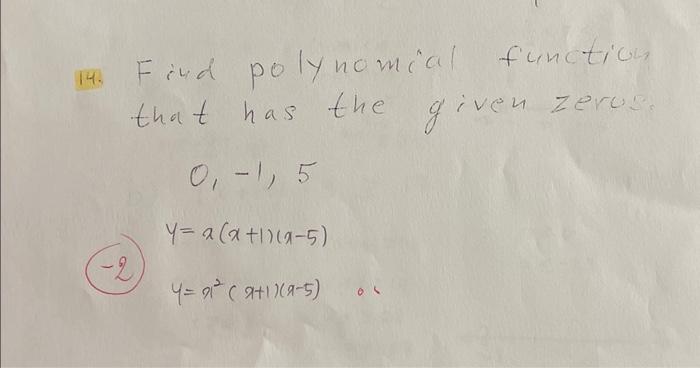 14. Find polynomial function
that has the given zeros.
0, -1, 5
y = x(x+1)(x-5)
-2
y = x²(x+1)(x-5)